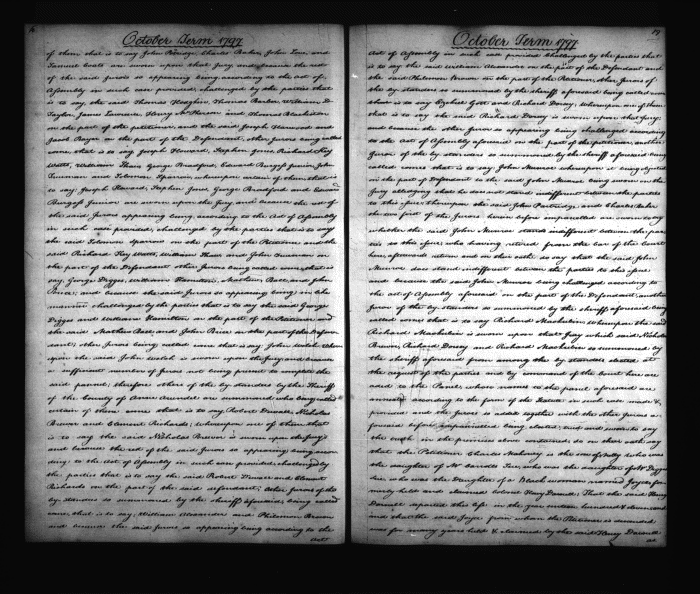 October Term 1797
of them that is to say John Partridge, Charles Baker, John Lane, and
Samuel Coats are sworn upon that Jury and because the rest
of the said Jurors so appearing being according to the act of
Assembly in such case provided, challenged by the parties that
is to say, the said Thomas Hodgkin, Thomas Barber, William D.
Taylor, James Lawrence, Henry and Thomas Blackiston
on the part of the petitioner, and the said Joseph Harwood and
Jacob Bryan on the part of the Defendant, other Jurors being called
come, that is to say Joseph Howard, Stephen June Richard Key
Watts, William Thaw, George Bradford, Edward Burgess Junior, John
Truman and Solomon Sparrow, whereupon certain of them that is
to say; Joseph Howard, Stephen June George Bradford and Edward
Burgess Junior are sworn upon the Jury and because the rest of
the said Jurors appearing being, according to the Act of Assembly
in such case provided, challenged by the parties that is to say
the said Solomon Sparrow on the part of the Petitioner and the
said Richard Key Watts, William Thaw and John Truman on
the part of the Defendant other Jurors being called come, that is to
say, George Digges, William Hamilton, Matthew Beall, and John
Price; and because the said Jurors so appearing being in like
manner challenged by the parties that is to say the said George
Digges and William Hamilton on the part of the Petitioner, and
the said Matthew Beall and John Price on the part of the Defen
dant; other Jurors being called come that is say John Welch where
upon the said John Welch is sworn upon the Jury and because
a sufficient number of Jurors not being present to complete the
said pannel; therefore others of the by standers by the Sheriff
of the County of Anne Arundel are summoned who being called
certain of them come that is to say Robert Duvall, Nicholas
Brewer and Clement Richards; whereupon one of them that
is to say the said Nicholas Brewer is sworn upon this Jury
and because the rest of the said Jurors so appearing being accor
ding to the Act of Assembly in such case provided, challenged by
the parties that is to say the said Robert and Clement
Richards on the part of the said defendant; other Jurors of the
by standers so summoned by the sheriff aforesaid being called
come, that is to say; William Alexander and Philemon Brown
and because the said Jurors so appearing being according to the
act
19
October Term 1797
Act of Assembly in such case provided challenged by the parties that
is to say the said William Alexander on the part of the Defendant and
the said Philemon Brown on the part of the Petitioner, other Jurors of
the by standers so summoned by the sheriff aforesaid being called come
that is to say Ezekiel Gott and Richard Dorsey, whereupon one of them
that is to say the said Richard Dorsey is sworn upon that Jury;
and because the other Juror so appearing being challenged according
to the Act of Assembly aforesaid on the part of the petitioner, another
Juror of the by standers so summoned by the sheriff aforesaid being
called come that is to say John Munroe whereupon it being objected
on the part of Defendant to the said John Munroe being sworn on the
Jury alledging that he did not stand indifferent between the parties
to this issue; thereupon the said John Partridge, and Charles Baker
the two first of the Jurors herein before impannelled are sworn to say
whether the said John Munroe stands indifferent between the par
ties to this issue, who having retired from the bar of the court
here, afterwards return and on their oath do say that the said John
Munroe does stand indifferent between the parties to this issue
and because the said John Munroe being challenged according to
the act of Assembly aforesaid on the part of the Defendant, another
Juror of the by standers so summoned by the sheriff aforesaid being
called come that is to say Richard Mackubin whereupon the said
Richard Mackubin is sworn upon that Jury which said Nicholas
Brewer, Richard Dorsey and Richard Mackubin so summoned by
the sheriff aforesaid from among the by standers elected at
the request of the parties and by command of the Court here are
added to the Panel whose names to the panel aforesaid are
annexed according to the form of the Statute in such case made &
provided and the Jurors so added together with the other Jurors a-
foresaid before impannelled being elected, tried and sworn to say
the truth in the premises above contained, do on their oath say
that the Petitioner Charles Mahoney is the son of Nelly who was
the daughter of Nt Candis Sue, who was the daughter of Nt Digges
Sue, who was the Daughter of a Black woman named Joyce for-
merly held and claimed Colonel Henry Darnall; That the said Henry
Darnall departed this life in the year seventeen hundred &
and that the said Joyce from whom the Petitioner is descended
was for many years held & claimed by the said Henry Darnall
as